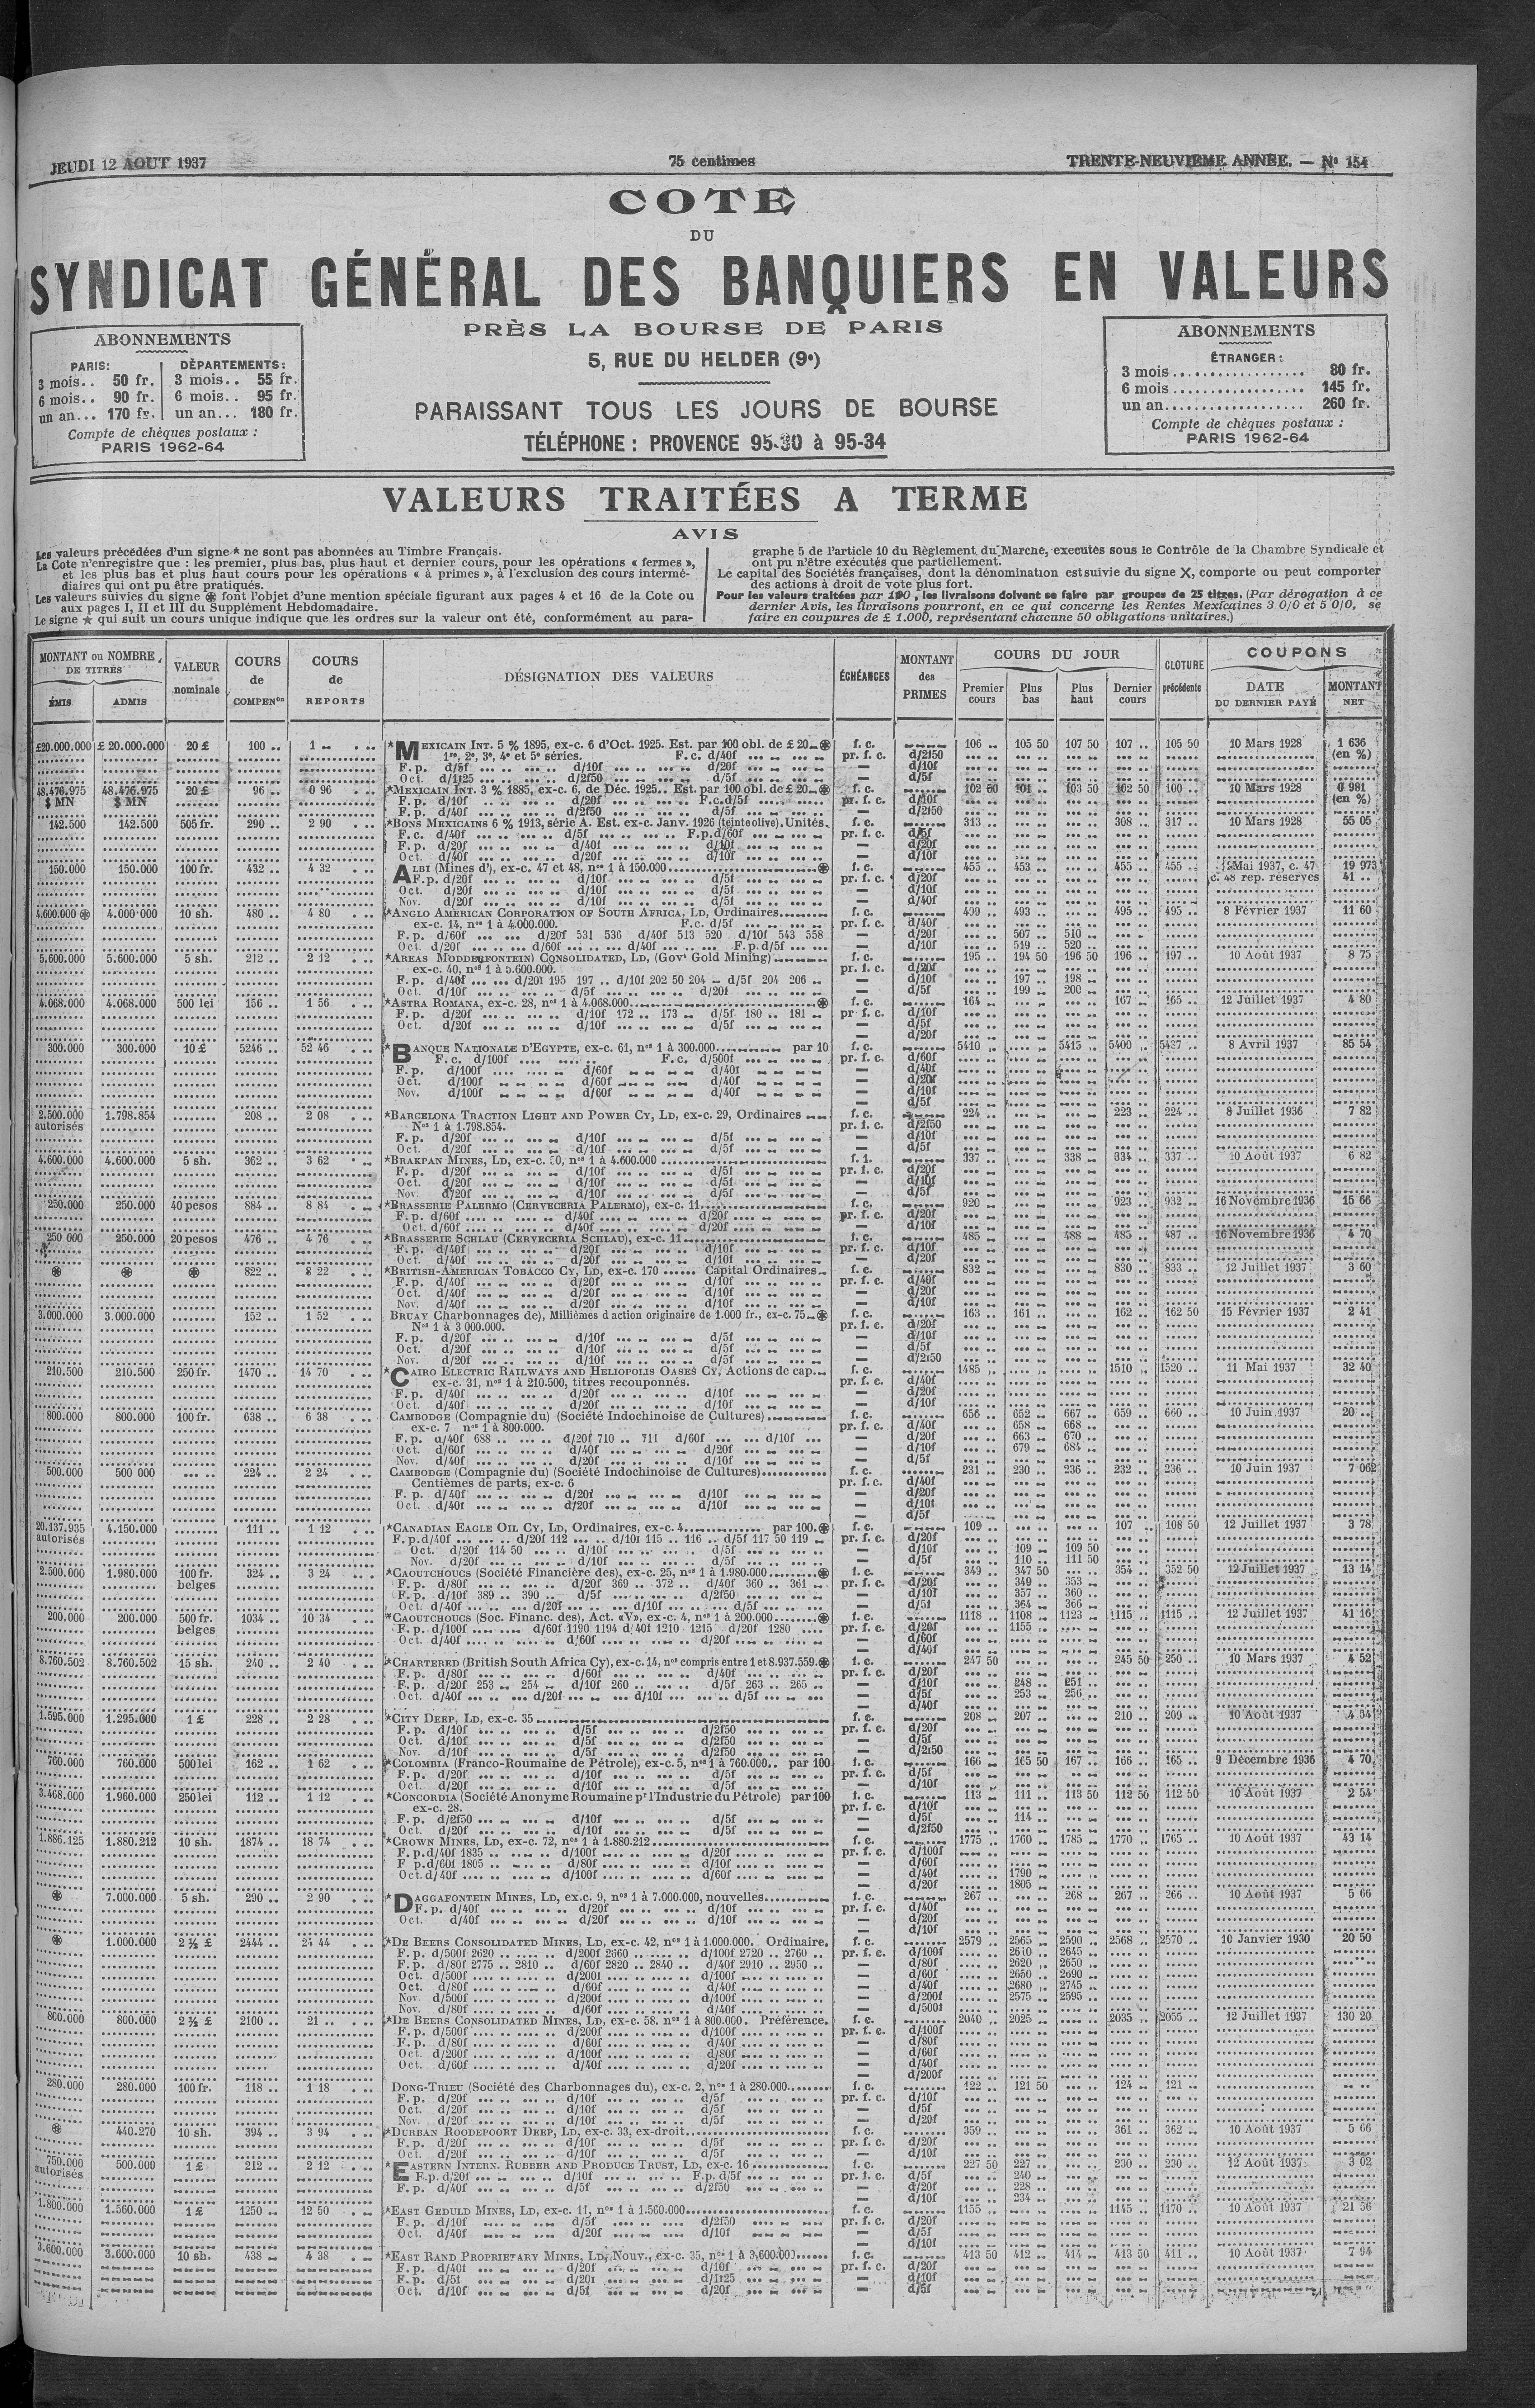 JEUDI 12 AOUT 1937
75 centimes
TRENTE-NEUVIEME ANNÉE. — Nº 154
COTE
DU
SYNDICAT GÉNÉRAL DES BANQUIERS EN VALEURS
PRÈS LA BOURSE DE PARIS
5, RUE DU HELDER (9e)
PARAISSANT TOUS LES JOURS DE BOURSE
TÉLÉPHONE : PROVENCE 95-30 à 95-34
ABONNEMENTS
PARIS: DÉPARTEMENTS:
3 mois.. 50 fr. 3 mois.. 55 fr.
6 mois.. 90 fr. 6 mois.. 95 fr.
un an... 170 fr. un an... 180 fr.
Compte de chèques postaux :
PARIS 1962-64
ABONNEMENTS
ÉTRANGER :
3 mois.................. 80 fr.
6 mois .................. 145 fr.
un an................... 260 fr.
Compte de chèques postaux :
PARIS 1962-64
VALEURS TRAITÉES A TERME
AVIS
Les valeurs précédées d'un signe * ne sont pas abonnées au Timbre Français.
La Cote n'enregistre que : les premier, plus bas, plus haut et dernier cours, pour les opérations « fermes »,
et les plus bas et plus haut cours pour les opérations « à primes », à l'exclusion des cours intermé-
diaires qui ont pu être pratiqués.
Les valeurs suivies du signe ⊛ font l'objet d'une mention spéciale figurant aux pages 4 et 16 de la Cote ou
aux pages I, II et III du Supplément Hebdomadaire.
Le signe ★ qui suit un cours unique indique que les ordres sur la valeur ont été, conformément au para-
graphe 5 de l'article 10 du Règlement du Marché, executés sous le Contrôle de la Chambre Syndicale et
ont pu n'être exécutés que partiellement.
Le capital des Sociétés françaises, dont la dénomination est suivie du signe X, comporte ou peut comporter
des actions à droit de vote plus fort.
Pour les valeurs traitées par 100, les livraisons doivent se faire par groupes de 25 titres. (Par dérogation à ce
dernier Avis, les livraisons pourront, en ce qui concerne les Rentes Mexicaines 3 0/0 et 5 0/0, se
faire en coupures de £ 1.000, représentant chacune 50 obligations unitaires.)
MONTANT ou NOMBRE DE TITRES
ÉMIS ADMIS
VALEUR nominale
COURS de COMPENon
COURS de REPORTS
DÉSIGNATION DES VALEURS
ÉCHÉANCES
MONTANT des PRIMES
COURS DU JOUR
Premier cours Plus bas Plus haut Dernier cours
CLOTURE précédente
COUPONS
DATE DU DERNIER PAYÉ MONTANT NET
£20.000.000 £ 20.000.000 20 £ 100 .. 1 *MEXICAIN INT. 5 % 1895, ex-c. 6 d'Oct. 1925. Est. par 100 obl. de £ 20 ⊛ f. c. 106 .. 105 50 107 50 107 .. 105 50 10 Mars 1928 1 636
1re, 2e, 3e, 4e et 5e séries. F. c. d/40f pr. f. c. d/2f50 (en %)
F. p. d/5f d/10f d/20f d/5f — d/10f
Oct. d/1f25 d/2f50 d/5f — d/5f
48.476.975 48.476.975 20 £ 96 .. 0 96 *MEXICAIN INT. 3 % 1885, ex-c. 6, de Déc. 1925.. Est. par 100 obl. de £ 20 ⊛ f. c. 102 50 101 .. 103 50 102 50 100 .. 10 Mars 1928 0 981
$ MN $ MN F. p. d/10f d/20f F.c.d/5f pr. f. c. d/10f (en %)
F. p. d/40f d/2f50 d/5f — d/2f50
142.500 142.500 505 fr. 290 .. 2 90 *BONS MEXICAINS 6 % 1913, série A. Est. ex-c. Janv. 1926 (teinte olive). Unités. f. c. 313 .. 308 .. 317 .. 10 Mars 1928 55 05
F. c. d/40f d/5f F.p.d/60f pr. f. c. d/5f
F. p. d/20f d/40f d/10f — d/20f
Oct. d/40f d/20f d/10f — d/10f
150.000 150.000 100 fr. 432 .. 4 32 ALBI (Mines d'), ex-c. 47 et 48, nos 1 à 150.000 ⊛ f. c. 455 .. 453 .. 455 .. 455 .. Mai 1937, c. 47 19 973
F. p. d/20f d/10f d/5f pr. f. c. d/20f c. 48 rep. réserves 41 ..
Oct. d/20f d/10f d/5f — d/10f
Nov. d/20f d/10f d/5f — d/40f
4.600.000 ⊛ 4.000.000 10 sh. 480 .. 4 80 *ANGLO AMERICAN CORPORATION OF SOUTH AFRICA, LD, Ordinaires f. c. 499 .. 493 .. 495 .. 495 .. 8 Février 1937 11 60
ex-c. 14, nos 1 à 4.000.000. F. c. d/5f pr. f. c. d/40f
F. p. d/60f d/20f 531 536 d/40f 513 520 d/10f 543 558 — d/20f 507 .. 510
Oct. d/20f d/60f d/40f F. p.d/5f — d/10f 519 .. 520 ..
5.600.000 5.600.000 5 sh. 212 .. 2 12 *AREAS MODDERFONTEIN) CONSOLIDATED, LD, (Govt Gold Mining) f. c. 195 .. 194 50 196 50 196 .. 197 .. 10 Août 1937 8 75
ex-c. 40, nos 1 à 5.600.000. pr. f. c. d/20f
F. p. d/40f d/20f 195 197 .. d/10f 202 50 204 d/5f 204 206 — d/10f 197 .. 198 ..
Oct. d/10f d/5f d/20f — d/5f 199 .. 200
4.068.000 4.068.000 500 lei 156 .. 1 56 *ASTRA ROMANA, ex-c. 28, nos 1 à 4.068.000 ⊛ f. c. 164 167 .. 165 .. 12 Juillet 1937 4 80
F. p. d/20f d/10f 172 .. 173 d/5f 180 .. 181 pr. f. c. d/10f
Oct. d/20f d/10f d/5f — d/5f
— d/20f
300.000 300.000 10 £ 5246 .. 52 46 *BANQUE NATIONALE D'EGYPTE, ex-c. 61, nos 1 à 300.000 par 10 f. c. 5410 .. 5415 .. 5400 .. 5437 .. 8 Avril 1937 85 54
F. c. d/100f F. c. d/500f pr. f. c. d/60f
F. p. d/100f d/60f d/40f — d/40f
Oct. d/100f d/60f d/40f — d/20f
Nov. d/100f d/60f d/40f — d/10f
— d/5f
2.500.000 1.798.854 208 .. 2 08 *BARCELONA TRACTION LIGHT AND POWER CY, LD, ex-c. 29, Ordinaires f. c. 224 223 .. 224 .. 8 Juillet 1936 7 82
autorisés Nos 1 à 1.798.854. pr. f. c. d/2f50
F. p. d/20f d/10f d/5f — d/10f
Oct. d/20f d/10f d/5f — d/5f
4.600.000 4.600.000 5 sh. 362 .. 3 62 *BRAKPAN MINES, LD, ex-c. 50, nos 1 à 4.600.000 f. c. 337 338 334 .. 337 .. 10 Août 1937 6 82
F. p. d/20f d/10f d/5f pr. f. c. d/20f
Oct. d/20f d/10f d/5f — d/10f
Nov. d/20f d/10f d/5f — d/5f
250.000 250.000 40 pesos 884 .. 8 84 *BRASSERIE PALERMO (CERVECERIA PALERMO), ex-c. 11 f. c. 920 923 .. 932 16 Novembre 1936 15 66
F. p. d/60f d/40f d/20f pr. f. c. d/20f
Oct. d/60f d/40f d/20f — d/10f
250 000 250.000 20 pesos 476 .. 4 76 *BRASSERIE SCHLAU (CERVECERIA SCHLAU), ex-c. 11 f. c. 485 488 485 .. 487 .. 16 Novembre 1936 4 70
F. p. d/40f d/20f d/10f pr. f. c. d/10f
Oct. d/40f d/20f d/10f — d/20f
⊛ ⊛ ⊛ 822 .. 8 22 *BRITISH-AMERICAN TOBACCO CY, LD, ex-c. 170 ..... Capital Ordinaires f. c. 832 830 .. 833 .. 12 Juillet 1937 3 60
F. p. d/40f d/20f d/10f pr. f. c. d/40f
Oct. d/40f d/20f d/10f — d/20f
Nov. d/40f d/20f d/10f — d/10f
3.000.000 3.000.000 152 1 52 BRUAY Charbonnages de), Millièmes d action originaire de 1.000 fr., ex-c. 75 ⊛ f. c. 163 .. 161 .. 162 .. 162 50 15 Février 1937 2 41
Nos 1 à 3 000.000. pr. f. c. d/20f
F. p. d/20f d/10f d/5f — d/10f
Oct. d/20f d/10f d/5f — d/5f
Nov. d/20f d/10f d/5f — d/2f50
210.500 210.500 250 fr. 1470 .. 14 70 *CAIRO ELECTRIC RAILWAYS AND HELIOPOLIS OASES CY, Actions de cap. f. c. 1485 1510 .. 1520 .. 11 Mai 1937 32 40
ex-c. 31, nos 1 à 210.500, titres recouponnés. pr. f. c. d/40f
F. p. d/40f d/20f d/10f — d/20f
Oct. d/40f d/20f d/10f — d/10f
800.000 800.000 100 fr. 638 .. 6 38 CAMBODGE (Compagnie du) (Société Indochinoise de Cultures) f. c. 656 .. 652 667 .. 659 .. 660 .. 10 Juin 1937 20 ..
ex-c. 7 nos 1 à 800.000. pr. f. c. d/40f 658 668
F. p. d/40f 688 .. d/20f 710 .. 711 d/60f d/10f — d/20f 663 .. 670
Oct. d/60f d/40f d/20f — d/10f 679 684
Nov. d/40f d/20f d/10f — d/5f
500.000 500 000 224 .. 2 24 CAMBODGE (Compagnie du) (Société Indochinoise de Cultures) f. c. 231 .. 230 .. 236 .. 232 .. 236 .. 10 Juin 1937 7 062
Centièmes de parts, ex-c. 6 pr. f. c. d/40f
F. p. d/40f d/20f d/10f — d/20f
Oct. d/40f d/20f d/10f — d/10f
— d/5f
20.137.935 4.150.000 111 .. 1 12 *CANADIAN EAGLE OIL CY, LD, Ordinaires, ex-c. 4 par 100.⊛ f. c. 109 107 .. 108 50 12 Juillet 1937 3 78
autorisés F. p.d/40f d/20f 112 d/10f 115 .. 116 .. d/5f 117 50 119 pr. f. c. d/20f
Oct. d/20f 114 50 d/10f d/5f — d/10f 109 109 50
Nov. d/20f d/10f d/5f — d/5f 110 .. 111 50
2.500.000 1.980.000 100 fr. 324 .. 3 24 *CAOUTCHOUCS (Société Financière des), ex-c. 25, nos 1 à 1.980.000 ⊛ f. c. 349 .. 347 50 354 .. 352 50 12 Juillet 1937 13 14
belges F. p. d/80f d/20f 369 .. 372 .. d/40f 360 .. 361 pr. f. c. d/20f 349 .. 353
F. p. d/10f 389 .. 390 d/5f d/2f50 — d/10f 357 .. 360
Oct. d/40f d/20f d/10f d/5f — d/5f 364 366
200.000 200.000 500 fr. 1034 .. 10 34 *CAOUTCHOUCS (Soc. Financ. des), Act. «V», ex-c. 4, nos 1 à 200.000 ⊛ f. c. 1118 .. 1108 1123 1115 .. 1115 .. 12 Juillet 1937 41 16
belges F. p. d/100f d/60f 1190 1194 d/40f 1210 1215 d/20f 1280 pr. f. c. d/20f 1155
Oct. d/40f d/60f d/20f — d/60f
— d/40f
8.760.502 8.760.502 15 sh. 240 .. 2 40 *CHARTERED (British South Africa Cy), ex-c. 14, nos compris entre 1 et 8.937.559.⊛ f. c. 247 50 245 50 250 .. 10 Mars 1937 4 52
F. p. d/80f d/60f d/40f pr. f. c. d/20f
F. p. d/20f 253 254 d/10f 260 .. d/5f 263 .. 265 — d/10f 248 .. 251 ..
Oct. d/40f d/20f d/10f d/5f — d/5f 253 256
— d/40f
1.595.000 1.295.000 1 £ 228 .. 2 28 *CITY DEEP, LD, ex-c. 35 f. c. 208 207 210 .. 209 .. 10 Août 1937 4 54
F. p. d/10f d/5f d/2f50 pr. f. c. d/20f
Oct. d/10f d/5f d/2f50 — d/5f
Nov. d/10f d/5f d/2f50 — d/2f50
760.000 760.000 500 lei 162 .. 1 62 *COLOMBIA (Franco-Roumaine de Pétrole), ex-c. 5, nos 1 à 760.000.. par 100 f. c. 166 165 50 167 .. 166 .. 165 .. 9 Décembre 1936 4 70
F. p. d/20f d/10f d/5f pr. f. c. d/5f
Oct. d/20f d/10f d/5f — d/10f
3.468.000 1.960.000 250 lei 112 .. 1 12 *CONCORDIA (Société Anonyme Roumaine pr l'Industrie du Pétrole) par 100 f. c. 113 111 .. 113 50 112 50 112 50 10 Août 1937 2 54
ex-c. 28. pr. f. c. d/10f
F. p. d/2f50 d/10f d/5f — d/5f 114
Oct. d/20f d/10f d/5f — d/2f50
1.886.125 1.880.212 10 sh. 1874 .. 18 74 *CROWN MINES, LD, ex-c. 72, nos 1 à 1.880.212 f. c. 1775 .. 1760 1785 1770 .. 1765 .. 10 Août 1937 43 14
F. p.d/40f 1835 .. d/100f d/20f pr. f. c. d/100f
F p.d/60f 1805 .. d/80f d/10f — d/60f
Oct.d/40f d/100f d/60f — d/40f 1790
— d/20f 1805
⊛ 7.000.000 5 sh. 290 .. 2 90 *DAGGAFONTEIN MINES, LD, ex.c. 9, nos 1 à 7.000.000, nouvelles f. c. 267 .. 268 .. 267 .. 266 .. 10 Août 1937 5 66
F. p. d/40f d/20f d/10f pr. f. c. d/40f
Oct. d/40f d/20f d/10f — d/20f
— d/10f
⊛ 1.000.000 2 ½ £ 2444 .. 24 44 *DE BEERS CONSOLIDATED MINES, LD, ex-c. 42, nos 1 à 1.000.000. Ordinaire. f. c. 2579 .. 2565 2590 2568 .. 2570 .. 10 Janvier 1930 20 50
F. p. d/500f 2620 d/200f 2660 d/100f 2720 .. 2760 pr. f. c. d/100f 2610 2645
F. p. d/80f 2775 .. 2810 .. d/60f 2820 .. 2840 .. d/40f 2910 .. 2950 — d/80f 2620 2650
Oct. d/500f d/200f d/100f — d/60f 2650 2690
Oct. d/80f d/60f d/40f — d/40f 2680 2745
Nov. d/500f d/200f d/100f — d/200f 2575 2595
Nov. d/80f d/60f d/40f — d/500f
800.000 800.000 2 ½ £ 2100 .. 21 .. *DE BEERS CONSOLIDATED MINES, LD, ex-c. 58. nos 1 à 800.000. Préférence. f. c. 2040 .. 2025 2035 .. 2055 .. 12 Juillet 1937 130 20
F. p. d/500f d/200f d/100f pr. f. c. d/100f
F. p. d/80f d/60f d/40f — d/80f
Oct. d/200f d/100f d/80f — d/60f
Oct. d/60f d/40f d/20f — d/40f
— d/200f
280.000 280.000 100 fr. 118 .. 1 18 DONG-TRIEU (Société des Charbonnages du), ex-c. 2, nos 1 à 280.000 f. c. 122 .. 121 50 124 121
F. p. d/20f d/10f d/5f pr. f. c. d/10f
Oct. d/20f d/10f d/5f — d/5f
Nov. d/20f d/10f d/5f — d/20f
⊛ 440.270 10 sh. 394 .. 3 94 *DURBAN ROODEPOORT DEEP, LD, ex-c. 33, ex-droit f. c. 359 361 .. 362 .. 10 Août 1937 5 66
F. p. d/20f d/10f d/5f pr. f. c. d/20f
Oct. d/20f d/10f d/5f — d/10f
750.000 500.000 1 £ 212 .. 2 12 *EASTERN INTERN. RUBBER AND PRODUCE TRUST, LD, ex-c. 16 f. c. 227 50 227 .. 230 .. 230 .. 12 Août 1937 3 02
autorisés F. p. d/20f d/10f F. p. d/5f pr. f. c. d/5f 240
F. p. d/40f d/5f d/2f50 — d/20f 228
— d/10f 234
1.800.000 1.560.000 1 £ 1250 12 50 *EAST GEDULD MINES, LD, ex-c. 11, nos 1 à 1.560.000 f. c. 1155 1145 .. 1170 .. 10 Août 1937 21 56
F. p. d/10f d/5f d/2f50 pr. f. c. d/20f
Oct. d/40f d/20f d/10f — d/5f
— d/10f
3.600.000 3.600.000 10 sh. 438 4 38 *EAST RAND PROPRIETARY MINES, LD, Nouv., ex-c. 35, nos 1 à 3.600.000 f. c. 413 50 412 414 413 50 411 .. 10 Août 1937 7 94
F. p. d/40f d/20f d/10f pr. f. c. d/20f
F. p. d/5f d/20f d/1f25 — d/10f
Oct. d/10f d/5f d/20f — d/5f